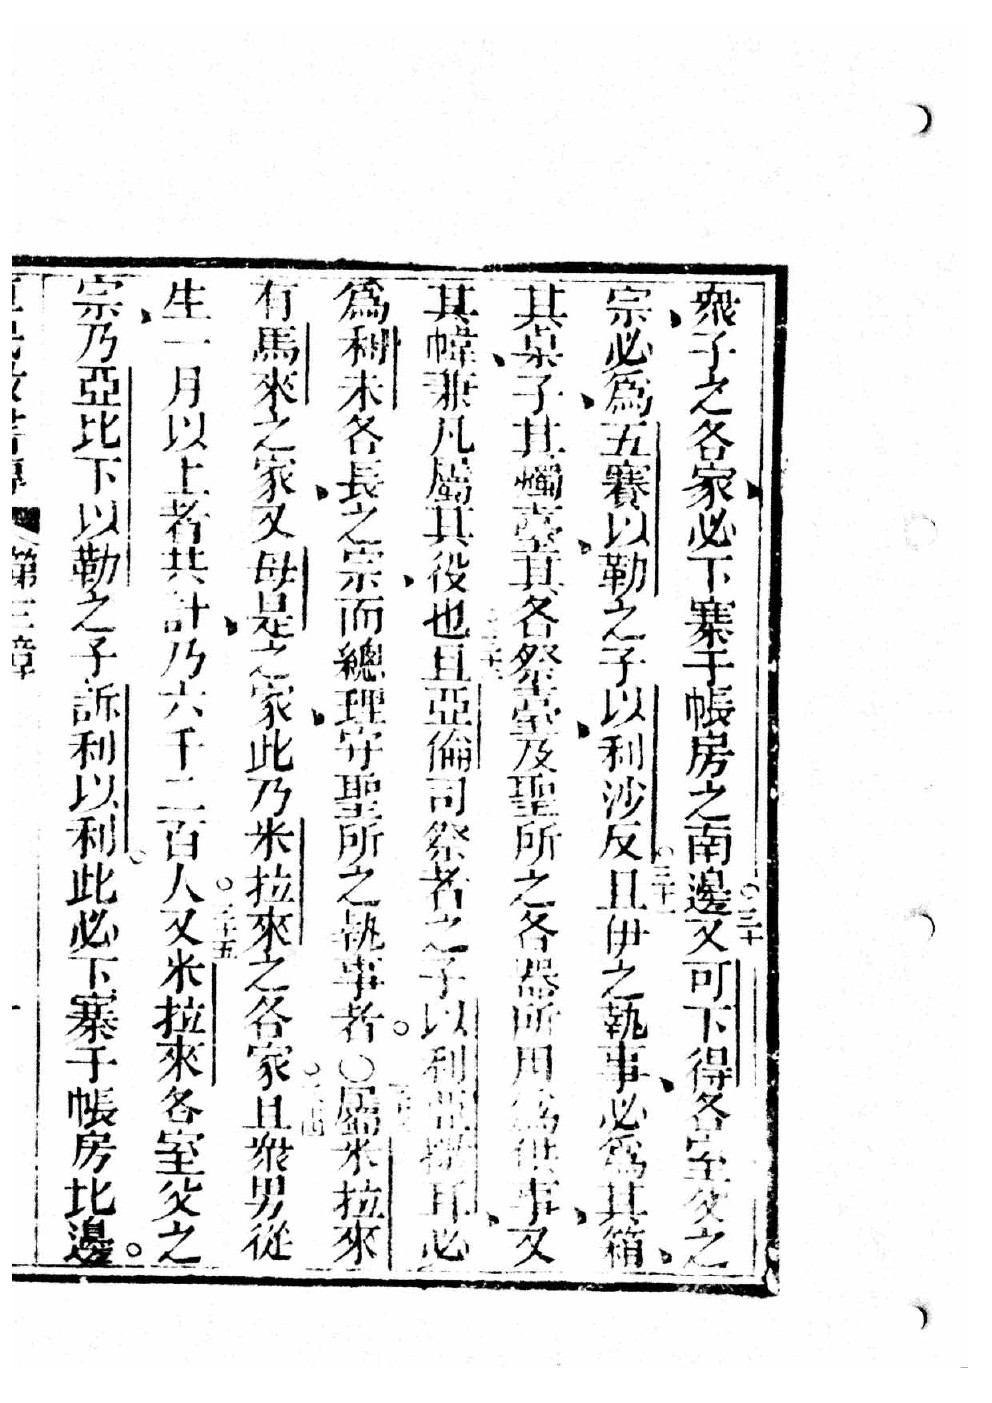 衆子之各家必下寨于帳房之南邊○三十又可下得各室父之
宗必爲五賽以勒之子以利沙反○三十一且伊之執事必爲其箱
其桌子其燭臺其各祭臺及聖所之各器所用爲供事又
其幃兼凡屬其役也○三十二且亞倫司祭者之子以利亞撒耳必
爲利未各長之宗而總理守聖所之執事者○屬米拉來
有馬來之家又母是之家此乃米拉來之各家○且衆男從
生一月以上者共計乃六千二百人○三十五又米拉來各室父之
宗乃亞比下以勒之子訴利以利此必下寨于帳房北邊
第三章